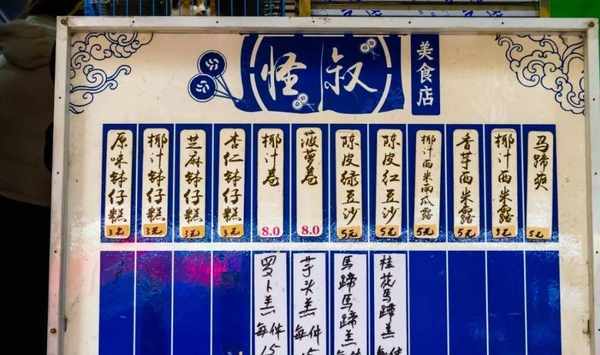 怪叔
美食店
原味钵仔糕
3元
椰汁钵仔糕
3元
芝麻钵仔糕
3元
杏仁钵仔糕
3元
椰汁卷
8.0
菠萝卷
8.0
陈皮绿豆沙
5元
陈皮红豆沙
5元
椰汁西米南瓜露
5元
香芋西米露
5元
椰汁西米露
5元
马蹄爽
5元
罗卜羔
每件15
芋头羔
每件15
马蹄马蹄羔
桂花马蹄羔